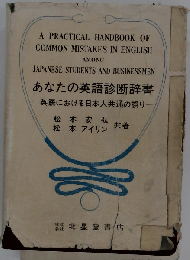 A PRACTICAL HANDBOOK OF
COMMON MISTAKES IN ENGLISH
AMONG
JAPANESE STUDENTS AND BUSINESSMEN
あなたの英語診断辞書
英語における日本人共通の誤り
松本安弘
松本アイリン
共著
株式会社 北星堂書店